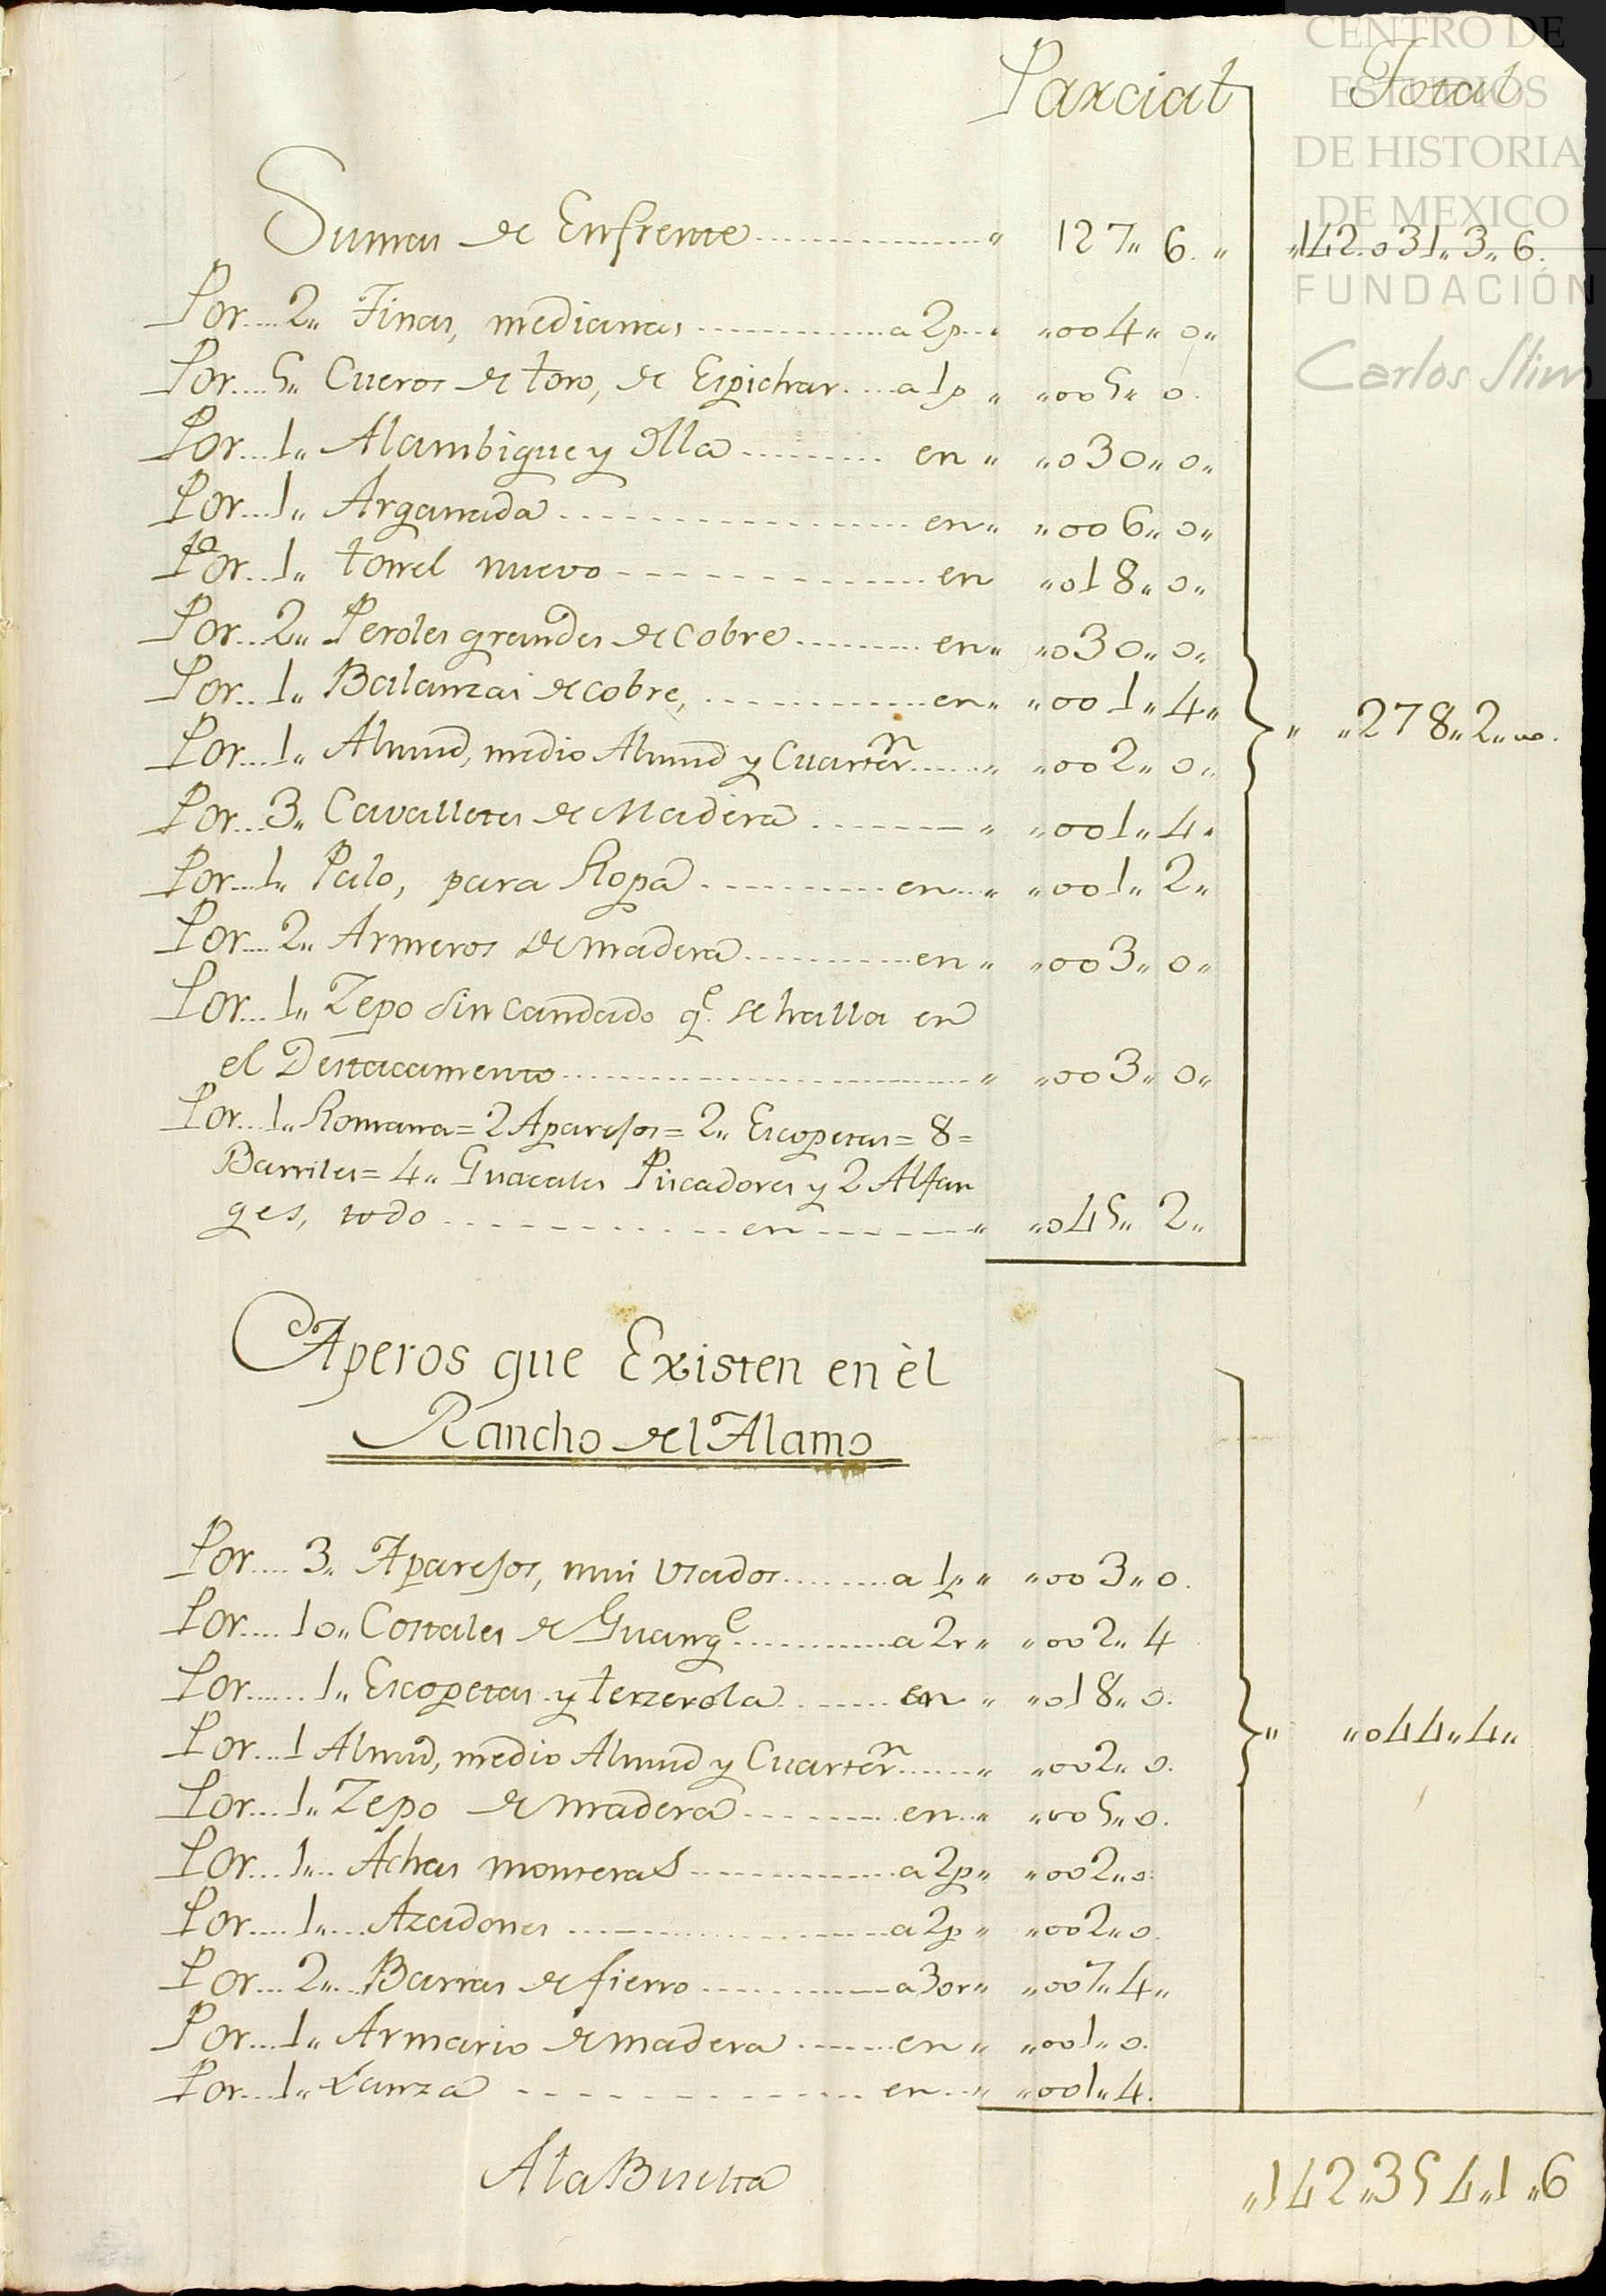 CENTRO DE
ESTUDIOS
DE HISTORIA
DE MEXICO
FUNDACIÓN
Carlos Slim
Parcial Total
Sumas de Enfrente ,, 127,, 6. ,, ,,142.031,, 3,, 6.
Por 2,, Tinas, medianas a 2p ,,004,, 0,,
Por 5,, Cueros de toro, de Espichar a 1p ,, ,,005,, 0.
Por 1,, Alambique y Olla en ,, ,,030,, 0,,
Por 1,, Arganada en ,, ,,006,, 0,,
Por 1,, tonel nuevo en ,,018,, 0,,
Por 2,, Peroles grandes de Cobre en ,, ,,030,, 0,,
Por 1,, Balanzas de cobre, en ,, ,,001,, 4,,
Por 1,, Almud, medio Almud y Cuartern ,, ,,002,, 0,, ,, ,,278,, 2,, 00.
Por 3,, Cavalletes de Madera ,, ,,001,, 4.
Por 1,, Palo, para Ropa en ,, ,,001,, 2,,
Por 2,, Armeros de madera en ,, ,,003,, 0,,
Por 1,, Zepo Sin Candado qe. se halla en
el Destacamento ,, ,,003,, 0,,
Por 1,, Romana = 2 Aparejos = 2,, Escopetas = 8 =
Barriles = 4,, Guacales Piscadores y 2 Alfan
ges, todo en ,, ,,045,, 2,,
Aperos que Existen en èl
Rancho del Alamo
Por 3,, Aparejos, mui Usados a 1p ,, ,,003,, 0.
Por 10,, Costales de Guange a 2r ,, ,,002,, 4
Por 1,, Escopetas y terzerola en ,, ,,018,, 0.
Por 1 Almud, medio Almud y Cuartern ,, ,,002,, 0. ,, ,,044,, 4,,
Por 1,, Zepo de madera en ,, ,,005,, 0.
Por 1,, Achas monteras a 2p ,, ,,002,, 0.
Por 1,, Azadones a 2p ,, ,,002,, 0.
Por 2,, Barras de fierro a 30r ,, ,,007,, 4,,
Por 1,, Armario de madera en ,, ,,001,, 0.
Por 1,, Lanza en ,, ,,001,, 4.
A la Buelta ,,142,,354,, 1,, 6